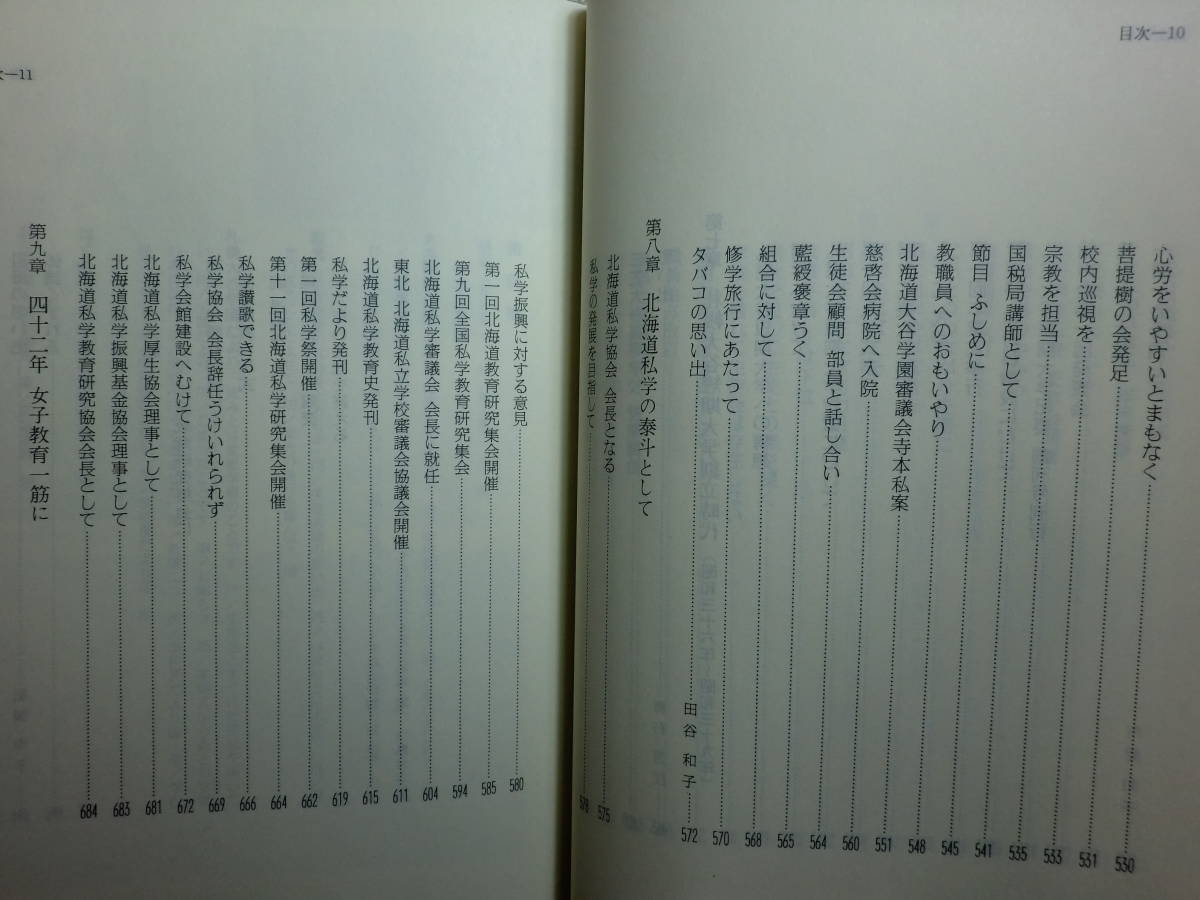 目次―10
心労をいやすいとまもなく……530
菩提樹の会発足……531
校内巡視を……533
宗教を担当……535
国税局講師として……541
節目 ふしめに……545
教職員へのおもいやり……548
北海道大谷学園審議会寺本私案……551
慈啓会病院へ入院……560
生徒会顧問 部員と話し合い……564
藍綬褒章うく……565
組合に対して……568
修学旅行にあたって……570
タバコの思い出……田谷和子……572
第八章 北海道私学の泰斗として
北海道私学協会 会長となる……575
私学の発展を目指して……578
―11
私学振興に対する意見……580
第一回北海道教育研究集会開催……585
第九回全国私学教育研究集会……594
北海道私学審議会 会長に就任……604
東北 北海道私立学校審議会協議会開催……611
北海道私学教育史発刊……615
私学だより発刊……619
第一回私学祭開催……662
第十一回北海道私学研究集会開催……664
私学讃歌できる……666
私学協会 会長辞任うけいれられず……669
私学会館建設へむけて……672
北海道私学厚生協会理事として……681
北海道私学振興基金協会理事として……683
北海道私学教育研究協会会長として……684
第九章 四十二年 女子教育一筋に